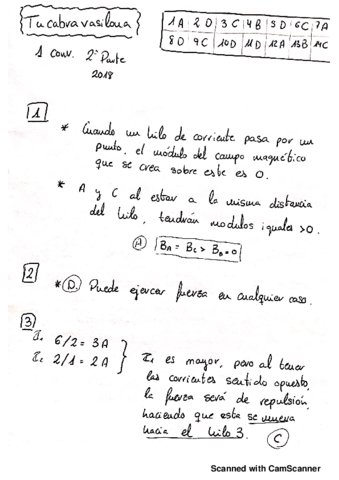 Tucabravasilona
1 conv. 2ª Parte
2018
1A 2D 3C 4B 5D 6C 7A
8D 9C 10D 11D 12A 13B 14C
1
* Cuando un hilo de corriente pasa por un
punto, el módulo del campo magnético
que se crea sobre este es 0.
* A y C al estar a la misma distancia
del hilo, tendrán modulos iguales >0.
A) BA = BC > BB = 0
2
* D. Puede ejercer fuerza en cualquier caso.
3
I1 6/2 = 3A
I2 2/1 = 2A
I1 es mayor, pero al tener
las corrientes sentido opuesto,
la fuerza será de repulsión,
haciendo que esta se mueva
hacia el hilo 3. C
Scanned with CamScanner